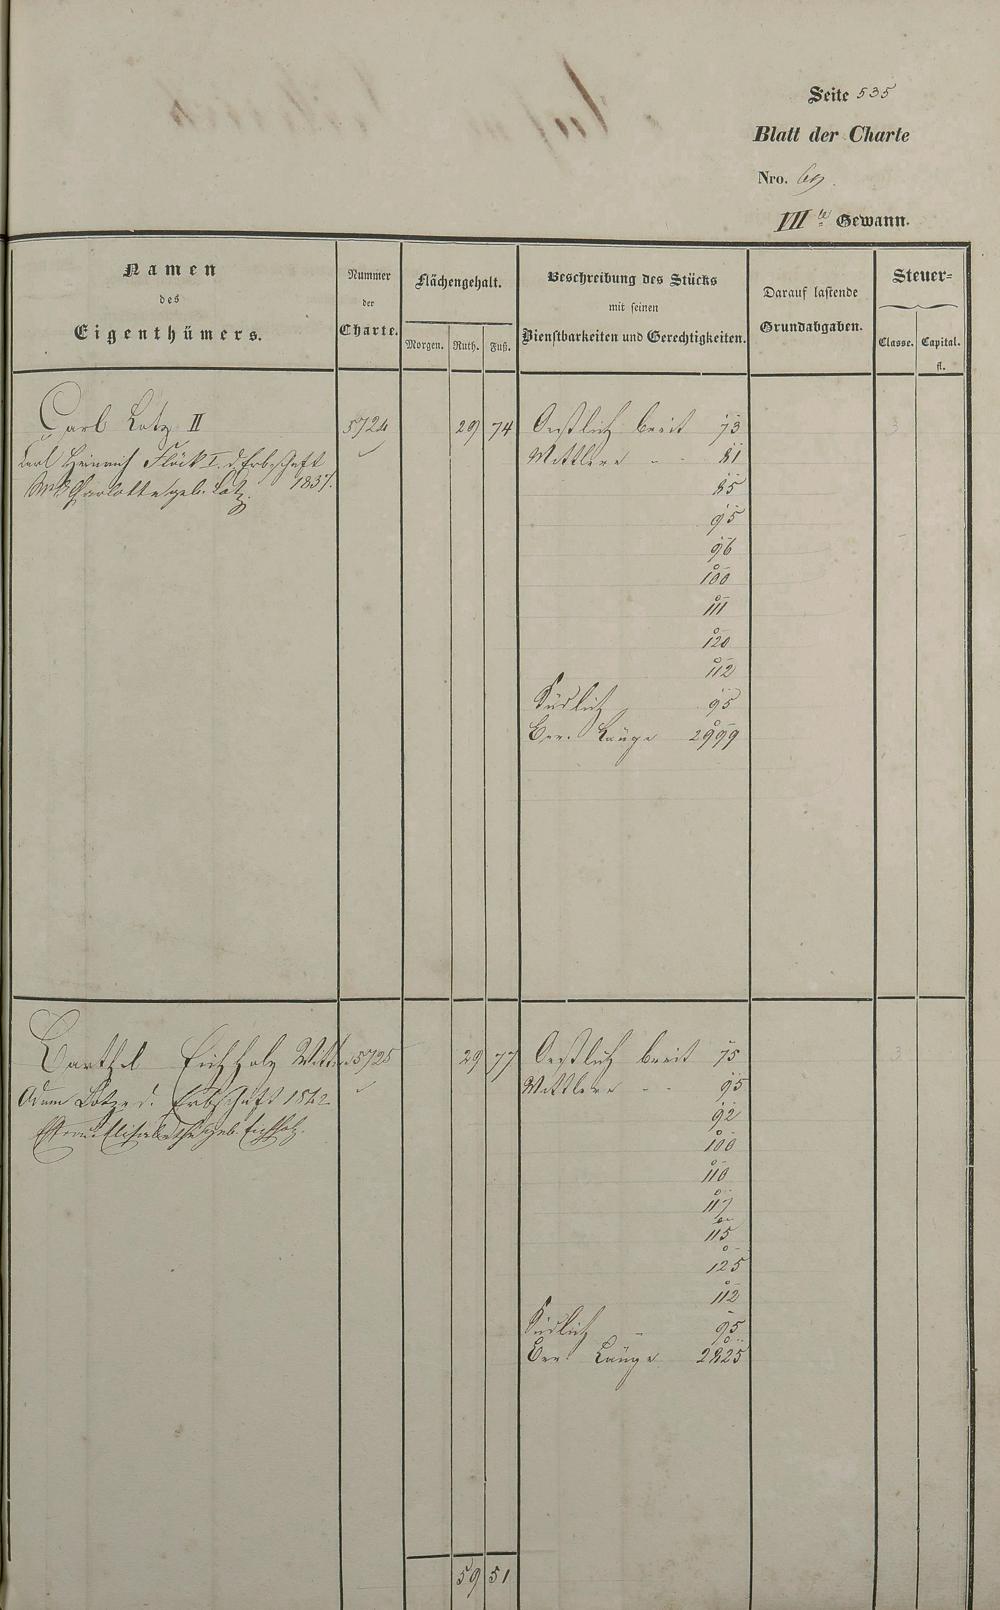 Seite 535
Blatt der Charte
Nro. 69.
VII te Gewann.
Namen
des
Eigenthümers.
Nummer
der
Charte.
Flächengehalt.
Morgen. Ruth. Fuß.
Beschreibung des Stücks
mit seinen
Dienstbarkeiten und Gerechtigkeiten.
Darauf lastende
Grundabgaben.
Steuer-
Classe. Capital.
fl.
Carl Lotz II 5724 29 74 Oestlich breit 73 3
Carl Heinrich Flöck I. d. Erbschaft Mittlere - - 81
Charlotte geb. Lotz. 1857. 85
95
96
100
111
120
112
Südlich 95
Länge 2999
Barthel Eichholz 5725 29 77 Oestlich breit 75 3
Adam Lotz d. Erbschaft 1842 Mittlere - - 95
Elisabetha geb. Eichholz. 92
100
110
117
115
125
112
Südlich - 95
Länge 2825
59 51